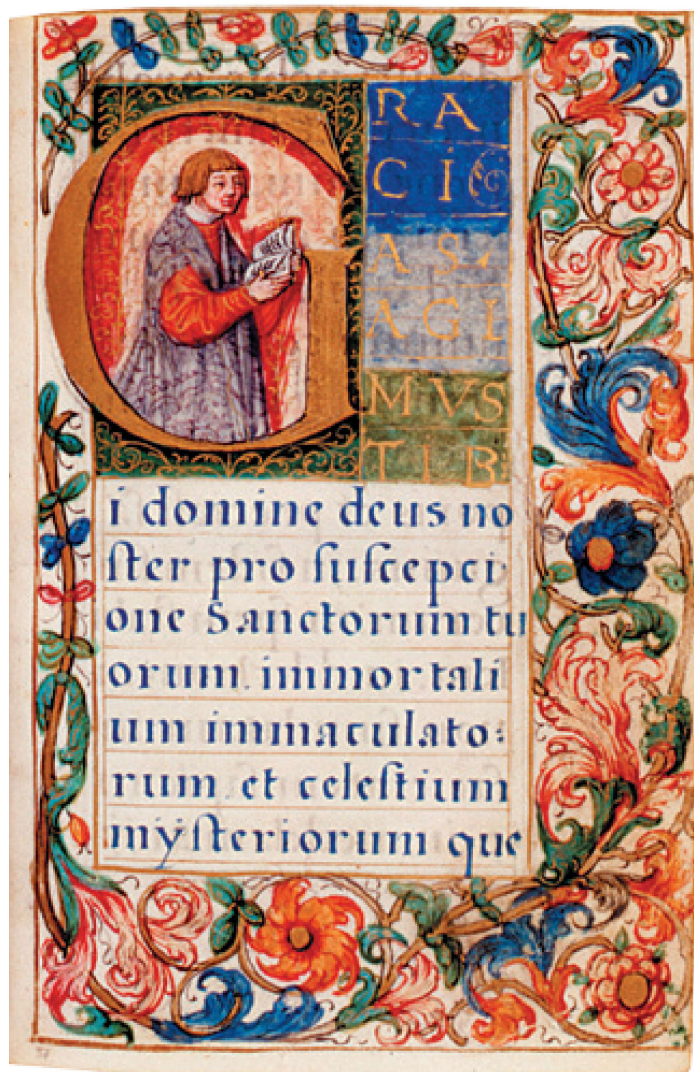 G RA
CI
AS
AGI
MVS
TIB
i domine deus no
ster pro suscepci
one Sanctorum tu
orum. immortali
um immaculato:
rum. et celestium
mysteriorum que